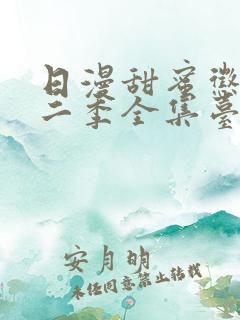 日漫甜蜜懲
二季全集臺
安月明
未经同意禁止转载